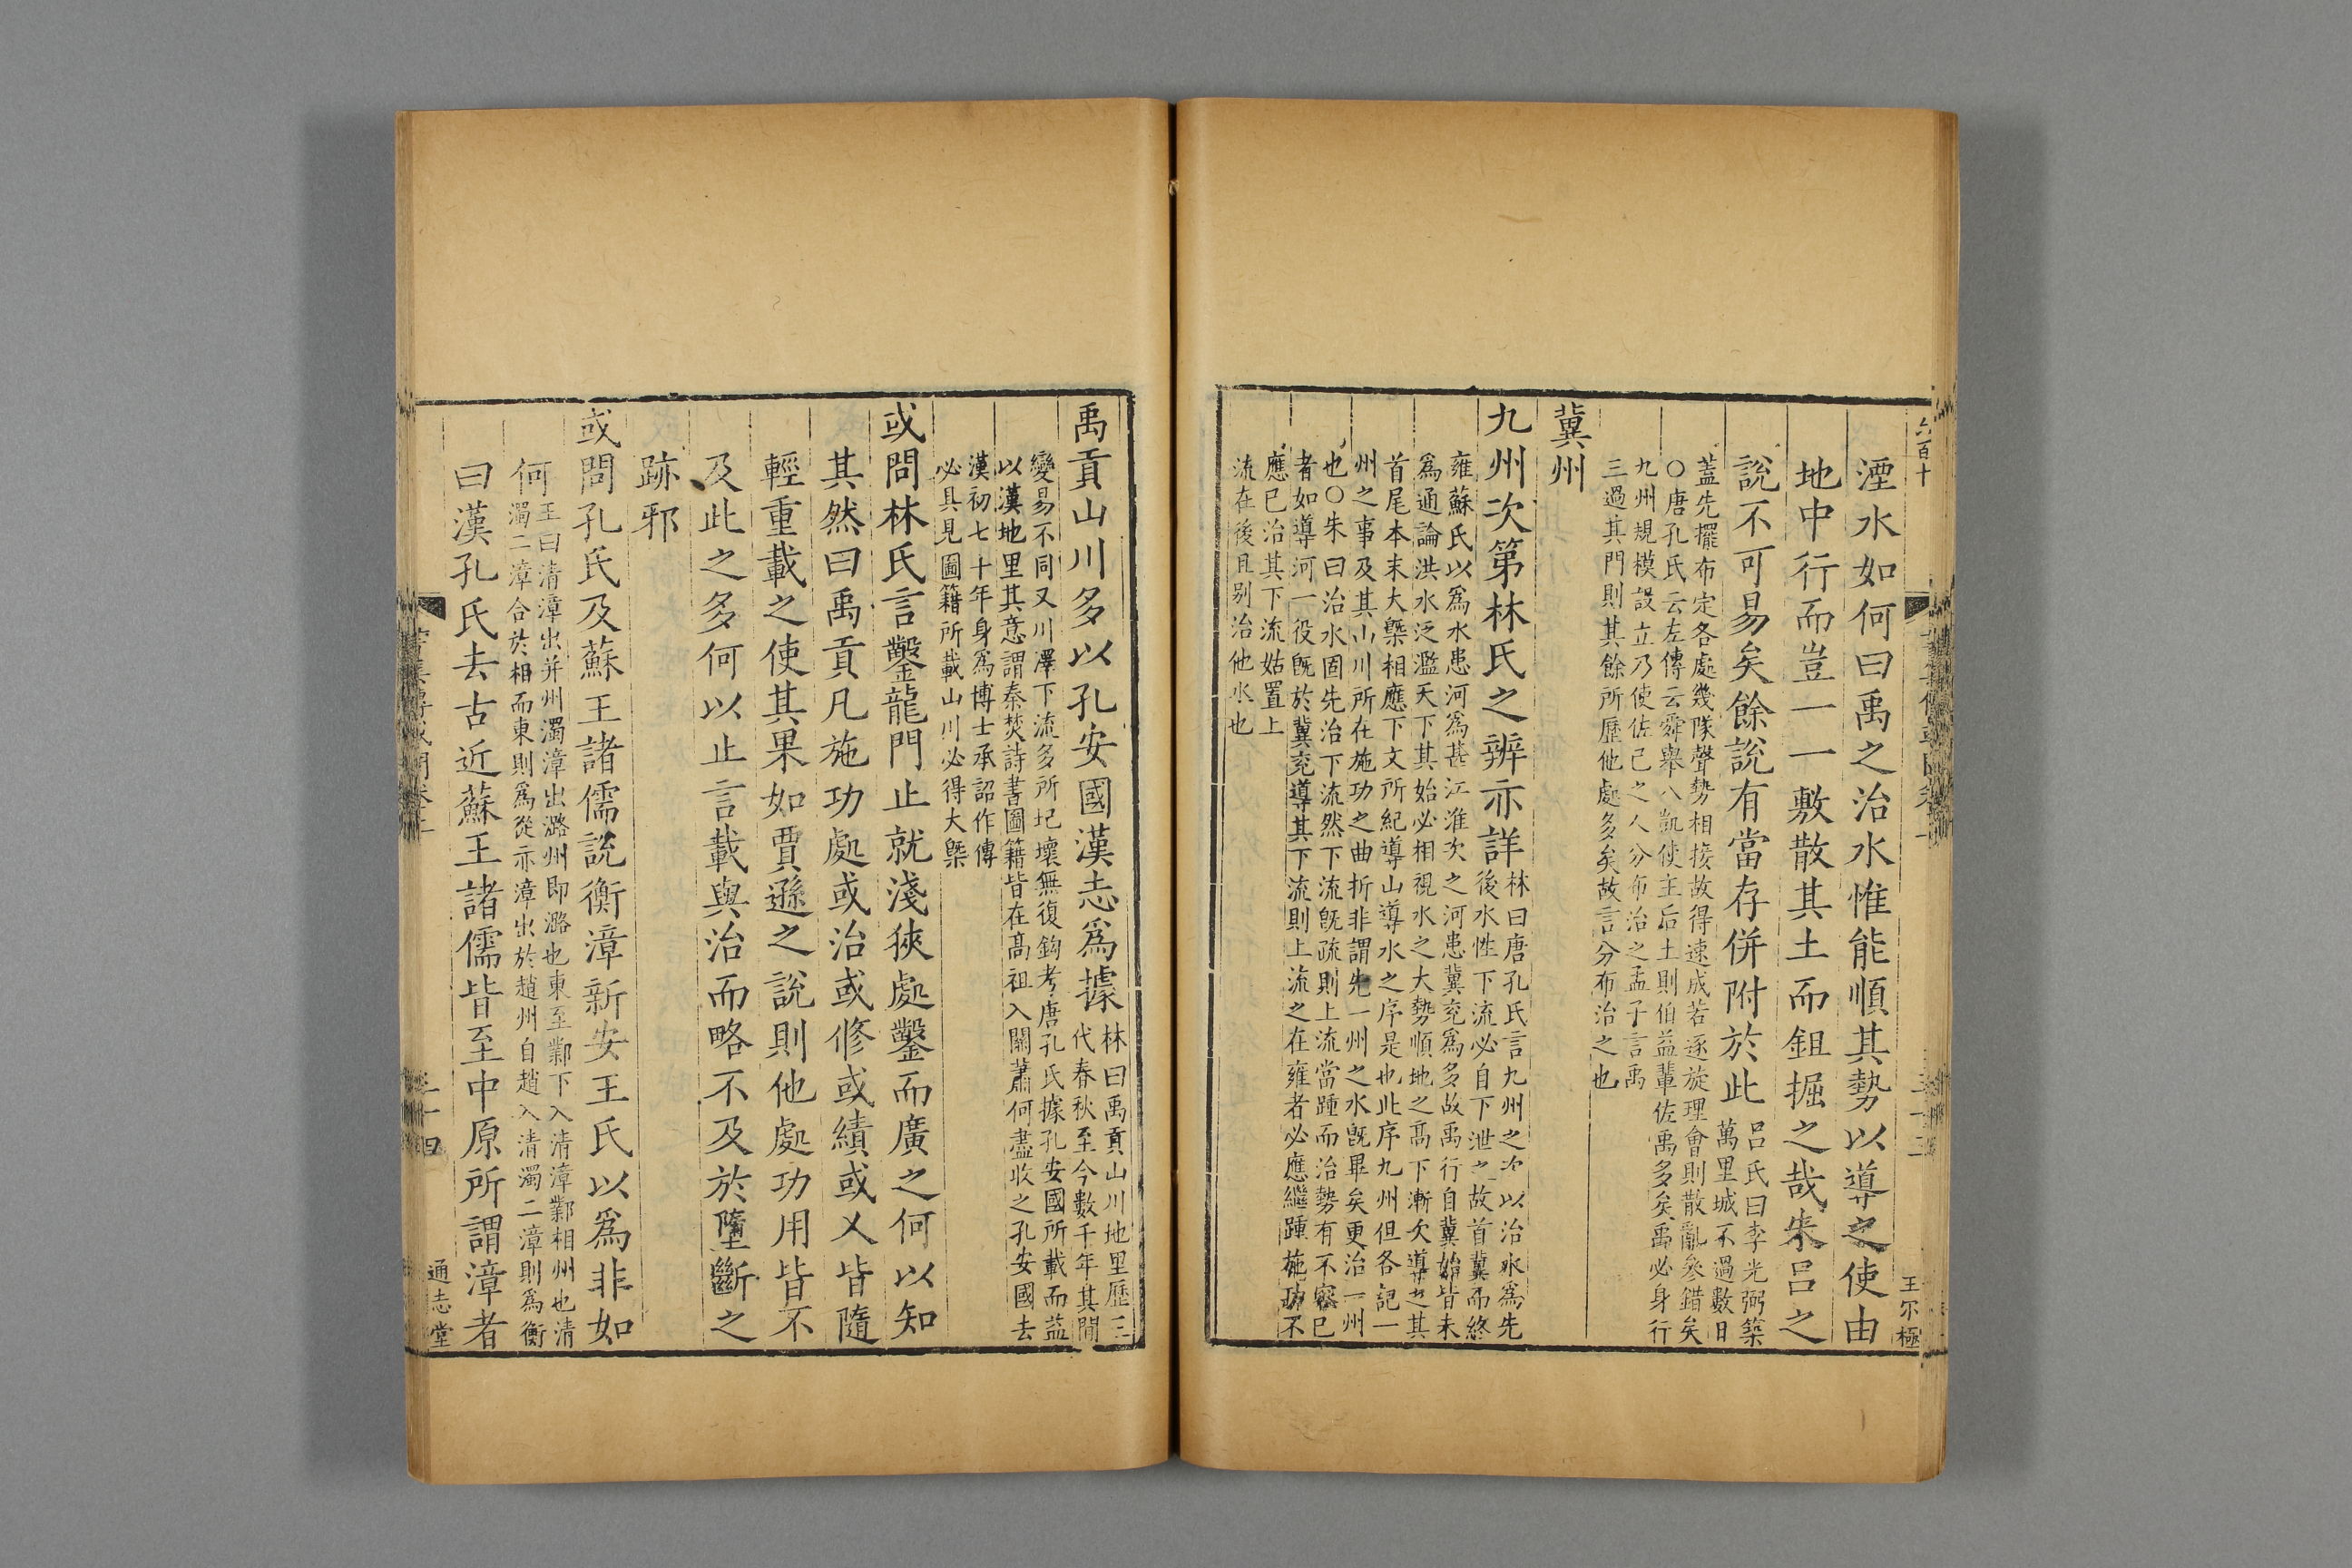 六百十
王尔極
湮水如何曰禹之治水惟能順其勢以導之使由
地中行而豈一一敷散其土而鉏掘之哉朱吕之
說不可易矣餘說有當存併附於此
吕氏曰李光弼築
萬里城不過數日
葢先擺布定各處幾隊聲勢相接故得速成若逐旋理會則散亂參錯矣
○唐孔氏云左傳云舜舉八凱使主后土則伯益輩佐禹多矣禹必身行
九州規模設立乃使佐己之人分布治之孟子言禹
三過其門則其餘所歷他處多矣故言分布治之也
冀州
九州次第林氏之辨亦詳
林曰唐孔氏言九州之次以治水爲先
後水性下流必自下泄之故首冀而終
雍蘇氏以爲水患河爲甚江淮次之河患冀兖爲多故禹行自冀始皆未
爲通論洪水泛濫天下其始必相視水之大勢順地之髙下漸次導之其
首尾本末大槩相應下文所紀導山導水之序是也此序九州但各記一
州之事及其山川所在施功之曲折非謂先一州之水旣畢矣更治一州
也○朱曰治水固先治下流然下流旣疏則上流當踵而治勢有不容已
者如導河一役旣於冀兖導其下流則上流之在雍者必應繼踵施功不
應已治其下流姑置上
流在後且别治他水也
禹貢山川多以孔安國漢志爲據
林曰禹貢山川地里歷三
代春秋至今數千年其間
變易不同又川澤下流多所圮壞無復鉤考唐孔氏據孔安國所載而益
以漢地里其意謂秦焚詩書圖籍皆在髙祖入關蕭何盡收之孔安國去
漢初七十年身爲博士承詔作傳
必具見圖籍所載山川必得大槩
或問林氏言鑿龍門止就淺狹處鑿而廣之何以知
其然曰禹貢凡施功處或治或修或績或乂皆隨
輕重載之使其果如賈遜之說則他處功用皆不
及此之多何以止言載與治而略不及於墮斷之
跡邪
或問孔氏及蘇王諸儒說衡漳新安王氏以爲非如
何
王曰清漳出并州濁漳出潞州即潞也東至鄴下入清漳鄴相州也清
濁二漳合於相而東則爲從亦漳出於趙州自趙入清濁二漳則爲衡
曰漢孔氏去古近蘇王諸儒皆至中原所謂漳者
二十四
通志堂